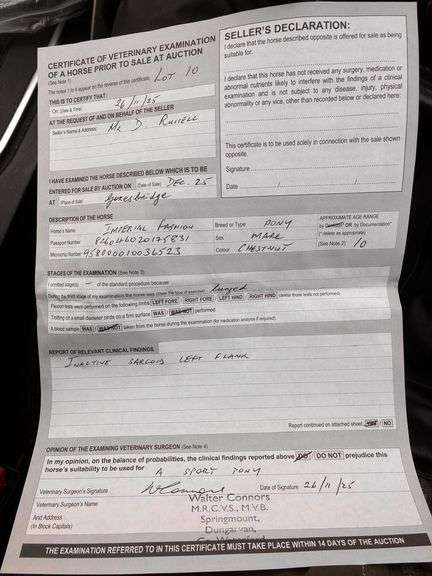 CERTIFICATE OF VETERINARY EXAMINATION
OF A HORSE PRIOR TO SALE AT AUCTION
(See Note 1)
The notes 1 to 4 appear on the reverse of this certificate. LOT 10
THIS IS TO CERTIFY THAT:
On: (Date & Time) 26/11/25
AT THE REQUEST OF AND ON BEHALF OF THE SELLER
Seller's Name & Address: Mr D. Russell
I HAVE EXAMINED THE HORSE DESCRIBED BELOW WHICH IS TO BE
ENTERED FOR SALE BY AUCTION ON (Date of Sale) DEC. 25
AT (Place of Sale) Goresbridge
SELLER'S DECLARATION:
I declare that the horse described opposite is offered for sale as being
suitable for.
I declare that this horse has not received any surgery, medication or
abnormal nutrients likely to interfere with the findings of a clinical
examination and is not subject to any disease, injury, physical
abnormality or any vice, other than recorded below or declared here:
This certificate is to be used solely in connection with the sale shown
opposite.
Signature
Date / /
DESCRIPTION OF THE HORSE
Horse's Name IMPERIAL FASHION
Passport Number
Microchip Number
Breed or Type PONY
Sex MARE
Colour CHESTNUT
APPROXIMATE AGE RANGE
by Dentition* OR by Documentation*
(* delete as appropriate)
(See Note 2) 10
STAGES OF THE EXAMINATION (See Note 3)
I omitted stage(s) – of the standard procedure because
During the third stage of my examination the horse was lunged
Flexion tests were performed on the following limbs LEFT FORE RIGHT FORE LEFT HIND RIGHT HIND (delete those tests not performed)
Trotting on a small diameter circle on a firm surface WAS WAS NOT performed
A blood sample WAS WAS NOT taken from the horse during the examination (for medication analysis if required)
REPORT OF RELEVANT CLINICAL FINDINGS
INACTIVE SARCOID LEFT FLANK
Report continued on attached sheet YES / NO
OPINION OF THE EXAMINING VETERINARY SURGEON (See Note 4)
In my opinion, on the balance of probabilities, the clinical findings reported above DO DO NOT prejudice this
horse's suitability to be used for A SPORT PONY
Veterinary Surgeon's Signature W Connors Date of Signature 26/11/25
Veterinary Surgeon's Name Walter Connors
And Address M.R.C.V.S., M.V.B.
(In Block Capitals) Springmount,
Dungarvan,
Co. Waterford
THE EXAMINATION REFERRED TO IN THIS CERTIFICATE MUST TAKE PLACE WITHIN 14 DAYS OF THE AUCTION